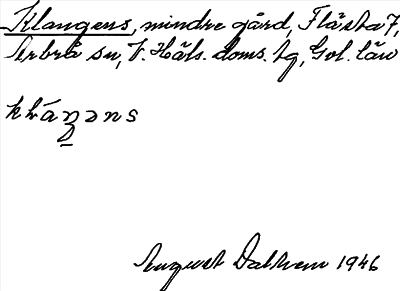 Klangens, mindre gård, Flästa 7,
Arbrå sn, V. Häls. doms. tg, Gvl. län
August Dalhem 1946